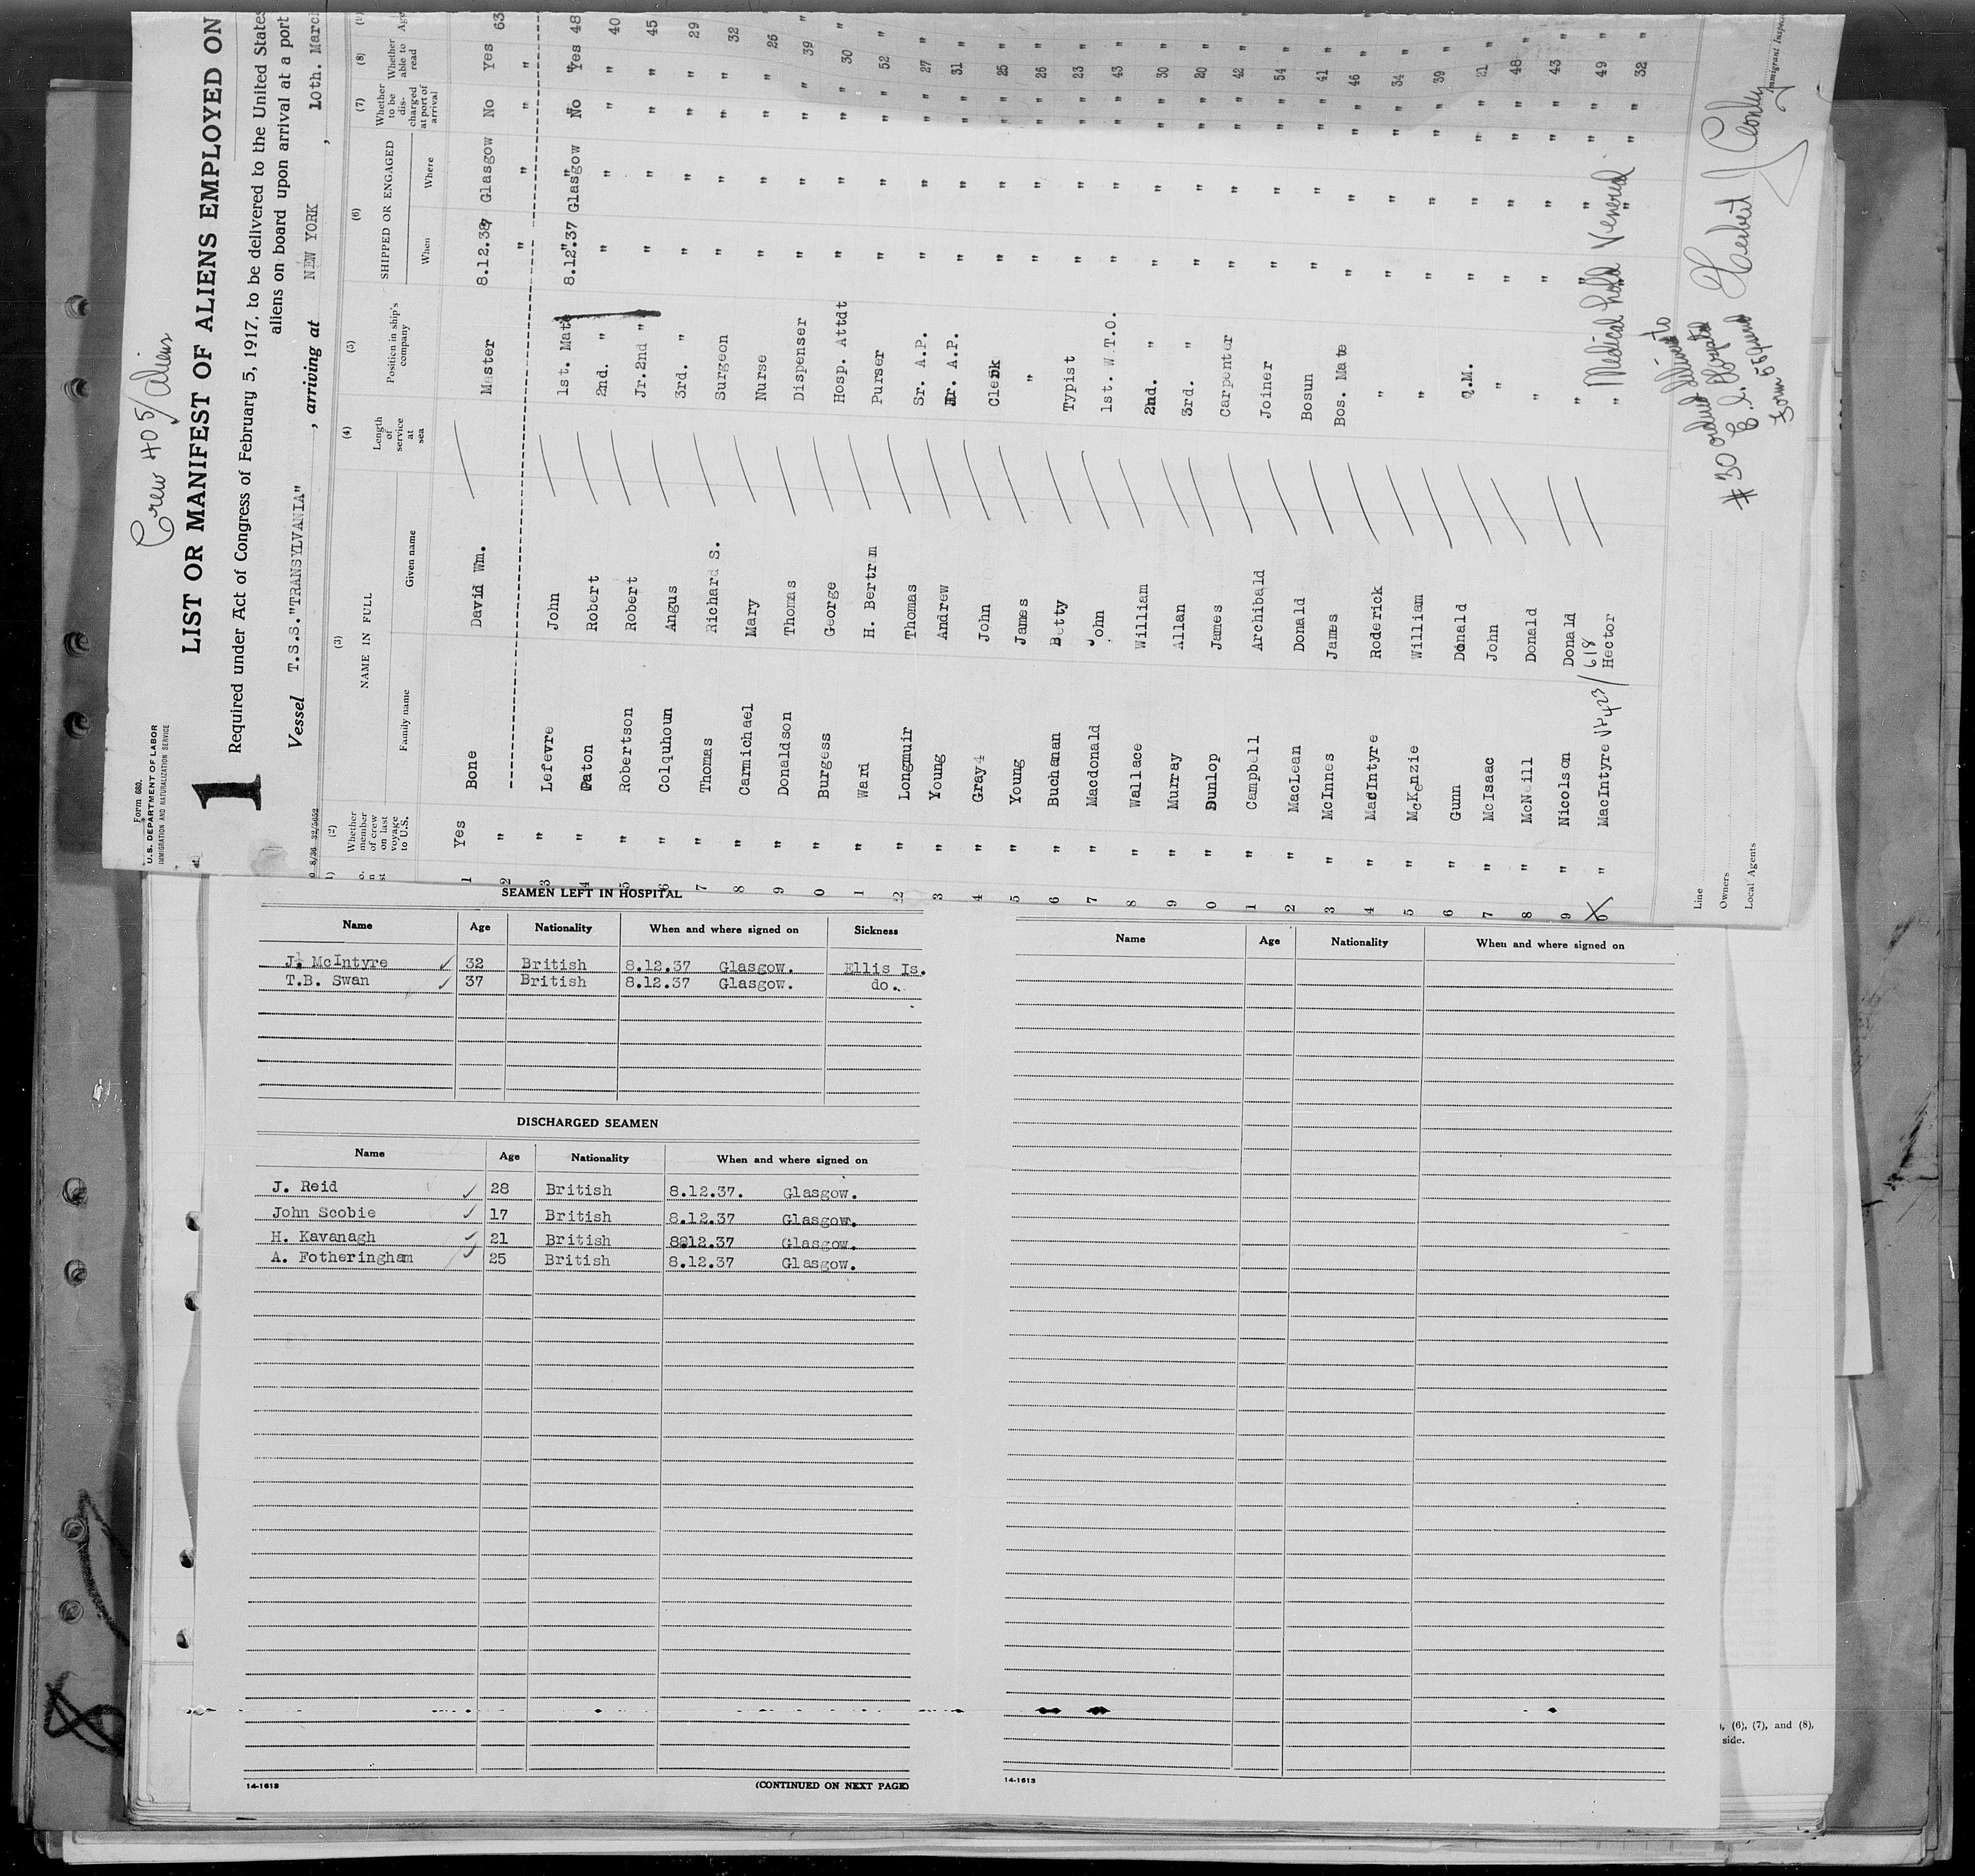 Crew 405/aliens
Form 680.
U.S. DEPARTMENT OF LABOR
IMMIGRATION AND NATURALIZATION SERVICE
1
LIST OR MANIFEST OF ALIENS EMPLOYED ON
Required under Act of Congress of February 5, 1917, to be delivered to the United States
aliens on board upon arrival at a port
Vessel T.S.S."TRANSYLVANIA", arriving at NEW YORK, 10th. March
(2) (3) (4) (5) (6) (7) (8) (9)
Whether member of crew on last voyage to U.S. NAME IN FULL Family name Given name Length of service at sea Position in ship's company SHIPPED OR ENGAGED When Where Whether to be discharged at port of arrival Whether able to read Age
1 Yes Bone David Wm. Master 8.12.37 Glasgow No Yes 63
2 " " " " "
3 " Lefevre John 1st. Mate 8.12.37 Glasgow No Yes 48
4 " Paton Robert 2nd. " " " " " 40
5 " Robertson Robert Jr.2nd " " " " " 45
6 " Colquhoun Angus 3rd. " " " " " 29
7 " Thomas Richard S. Surgeon " " " " 32
8 " Carmichael Mary Nurse " " " " 26
9 " Donaldson Thomas Dispenser " " " " 39
0 " Burgess George Hosp. Attdt " " " " 30
1 " Ward H. Bertram Purser " " " " 52
2 " Longmuir Thomas Sr. A.P. " " " " 27
3 " Young Andrew Jr. A.P. " " " " 31
4 " Gray John Clerk " " " " 25
5 " Young James " " " " " 26
6 " Buchanan Betty Typist " " " " 23
7 " Macdonald John 1st. W.T.O. " " " " 43
8 " Wallace William 2nd. " " " " " 30
9 " Murray Allan 3rd. " " " " " 20
0 " Dunlop James Carpenter " " " " 42
1 " Campbell Archibald Joiner " " " " 54
2 " MacLean Donald Bosun " " " " 41
3 " McInnes James Bos. Mate " " " " 46
4 " MacIntyre Roderick " " " " " 34
5 " McKenzie William " " " " " 39
6 " Gunn Donald Q.M. " " " " 21
7 " McIsaac John " " " " " 48
8 " McNeill Donald " " " " " 43
9 " Nicolson Donald " " " " " 49
0 " MacIntyre 423/618 Hector " " " " " 32
Medical hold Venereal
#30 ordered delivered to
E.I. Hospital
Form 559
Herbert J Conley
Immigrant Inspec
Line
Owners
Local Agents
SEAMEN LEFT IN HOSPITAL
Name Age Nationality When and where signed on Sickness
J. McIntyre 32 British 8.12.37 Glasgow. Ellis Is.
T.B. Swan 37 British 8.12.37 Glasgow. do.
DISCHARGED SEAMEN
Name Age Nationality When and where signed on
J. Reid 28 British 8.12.37. Glasgow.
John Scobie 17 British 8.12.37 Glasgow.
H. Kavanagh 21 British 8812.37 Glasgow.
A. Fotheringham 25 British 8.12.37 Glasgow.
14-1613 (CONTINUED ON NEXT PAGE)
Name Age Nationality When and where signed on
14-1613
, (6), (7), and (8),
side.